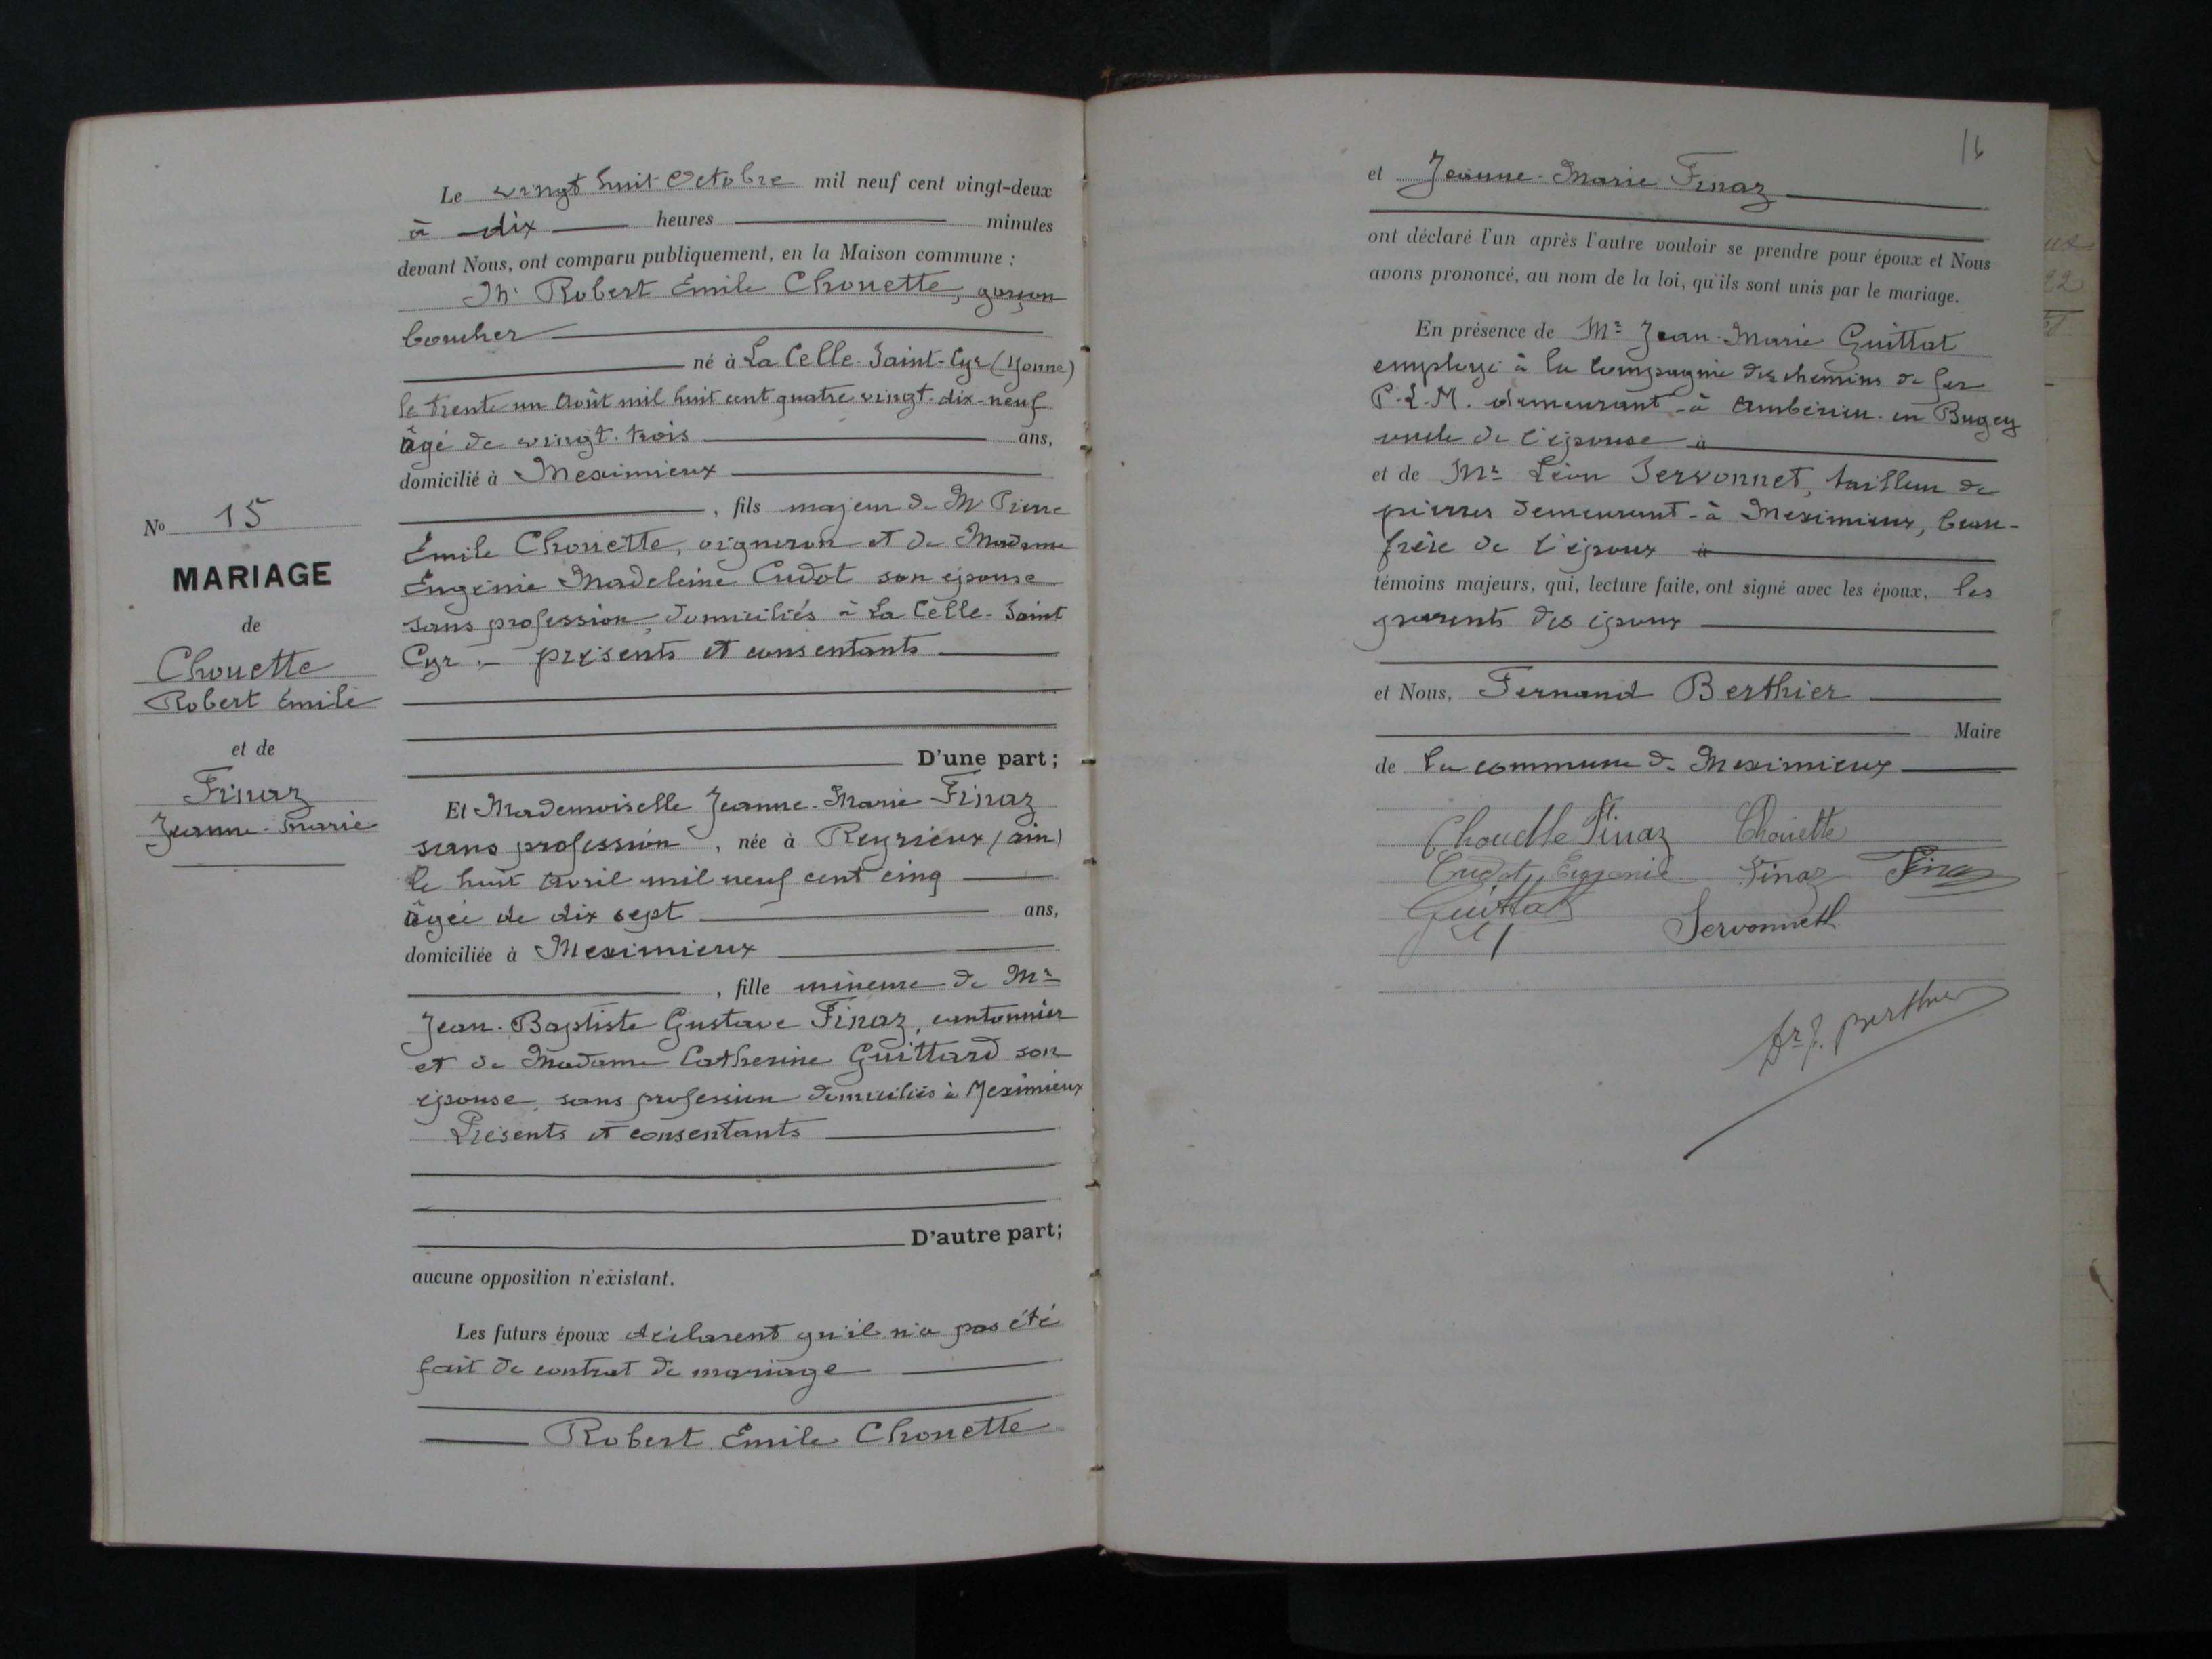 Le vingt huit Octobre mil neuf cent vingt-deux
à dix heures minutes
devant Nous, ont comparu publiquement, en la Maison commune :
Mr Robert Emile Chouette, garçon
boucher
né à La Celle-Saint-Cyr (Yonne)
le trente un Août mil huit cent quatre vingt-dix-neuf
âgé de vingt-trois ans,
domicilié à Meximieux
, fils majeur de Mr Pierre
Emile Chouette, vigneron et de Madame
Eugénie Madeleine Cudot son épouse
sans profession, domiciliés à La Celle-Saint
Cyr. – présents et consentants
No 15
MARIAGE
de
Chouette
Robert Emile
et de
Finaz
Jeanne-Marie
D'une part ;
Et Mademoiselle Jeanne-Marie Finaz
sans profession, née à Reyrieux (Ain)
le huit Avril mil neuf cent cinq
âgée de dix sept ans,
domiciliée à Meximieux
, fille mineure de Mr
Jean-Baptiste Gustave Finaz, cantonnier
et de Madame Catherine Guittard son
épouse, sans profession domiciliés à Meximieux
Présents et consentants
D'autre part ;
aucune opposition n'existant.
Les futurs époux déclarent qu'il n'a pas été
fait de contrat de mariage
Robert Emile Chouette
16
et Jeanne-Marie Finaz
ont déclaré l'un après l'autre vouloir se prendre pour époux et Nous
avons prononcé, au nom de la loi, qu'ils sont unis par le mariage.
En présence de Mr Jean-Marie Guittat
employé à la Compagnie des chemins de fer
P.L.M. demeurant à Ambérieu-en Bugey
oncle de l'épouse à
et de Mr Léon Servonnet, tailleur de
pierres demeurant à Meximieux, beau-
frère de l'époux à
témoins majeurs, qui, lecture faite, ont signé avec les époux, les
parents des époux
et Nous, Fernand Berthier
Maire
de la commune de Meximieux
Chouette Finaz Chouette
Cudot Eugénie Finaz Finaz
Guittat
Servonnett
Dr F. Berthier